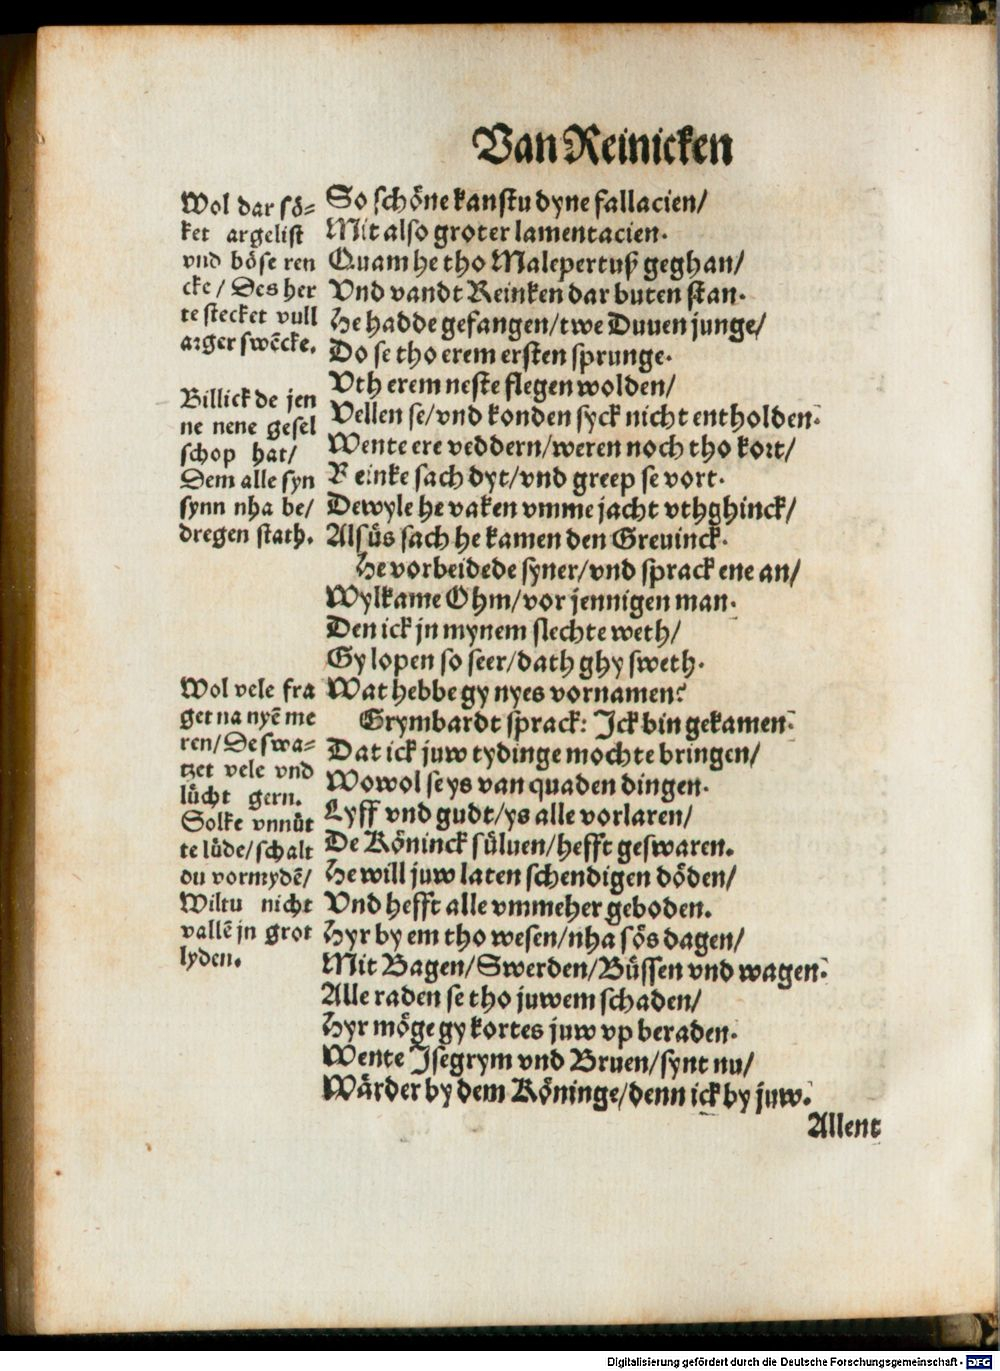 Van Reinicken
Wol dar sö=
ket argelist
vnd böse ren
cke / Des her
te stecket vull
arger swēcke.
Billick de jen
ne nene gesel
schop hat/
Dem alle syn
synn nha be/
dregen stath.
Wol vele fra
get na nyē me
ren/De swa=
tzet vele vnd
lücht gern.
Solke vnnüt
te lüde/schalt
du vormydē/
Wiltu nicht
vallē jn grot
lyden.
So schöne kanstu dyne fallacien/
Mit also groter lamentacien.
Quam he tho Malepertuß geghan/
Vnd vandt Reinken dar buten stan.
He hadde gefangen/twe Duuen junge/
Do se tho erem ersten sprunge.
Vth erem neste flegen wolden/
Vellen se/vnd konden syck nicht entholden.
Wente ere veddern/weren noch tho kort/
Reinke sach dyt/vnd greep se vort.
Dewyle he vaken vmme jacht vthghinck/
Alsüs sach he kamen den Greuinck.
He vorbeidede syner/vnd sprack ene an/
Wylkame Ohm/vor jennigen man.
Den ick jn mynem slechte weth/
Gy lopen so seer/dath ghy sweth.
Wat hebbe gy nyes vornamen?
Grymbardt sprack: Jck bin gekamen.
Dat ick juw tydinge mochte bringen/
Wowol se ys van quaden dingen.
Lyff vnd gudt/ys alle vorlaren/
De Köninck süluen/hefft geswaren.
He will juw laten schendigen döden/
Vnd hefft alle vmmeher geboden.
Hyr by em tho wesen/nha sös dagen/
Mit Bagen/Swerden/Büssen vnd wagen.
Alle raden se tho juwem schaden/
Hyr möge gy kortes juw vp beraden.
Wente Jsegrym vnd Bruen/synt nu/
Wärder by dem Köninge/denn ick by juw.
Allent
Digitalisierung gefördert durch die Deutsche Forschungsgemeinschaft - DFG